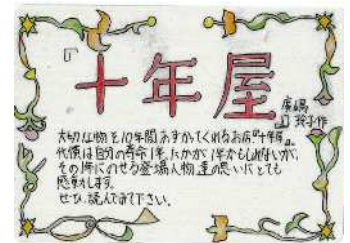 『十年屋』
廣嶋玲子作
大切な物を10年間あずかってくれるお店『十年屋』。
代償は自分の寿命1年。たかが1年かもしれないが、
その1年にのせる登場人物達の思いにとても
感動します。
ぜひ、読んでみて下さい。